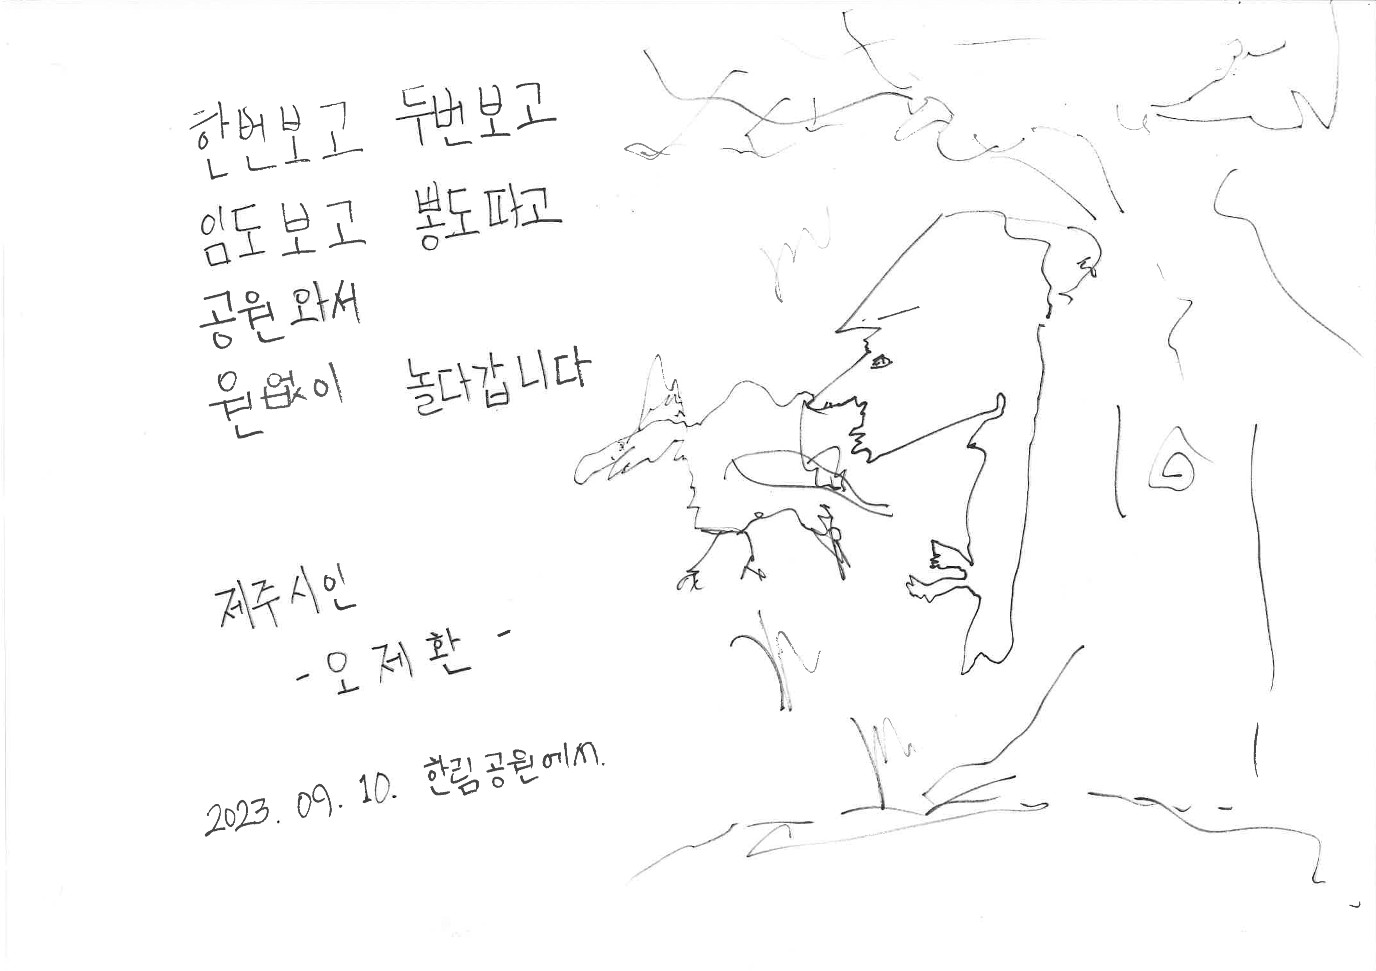 한번보고 두번보고
임도보고 뽕도따고
공원와서
원없이 놀다갑니다
제주시인
- 오제환 -
2023. 09. 10. 한림공원에서.